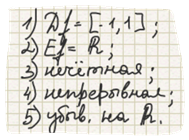 1) Df = [-1,1];
2) Ef = R;
3) нечётная;
4) непрерывная;
5) убыв. на R.